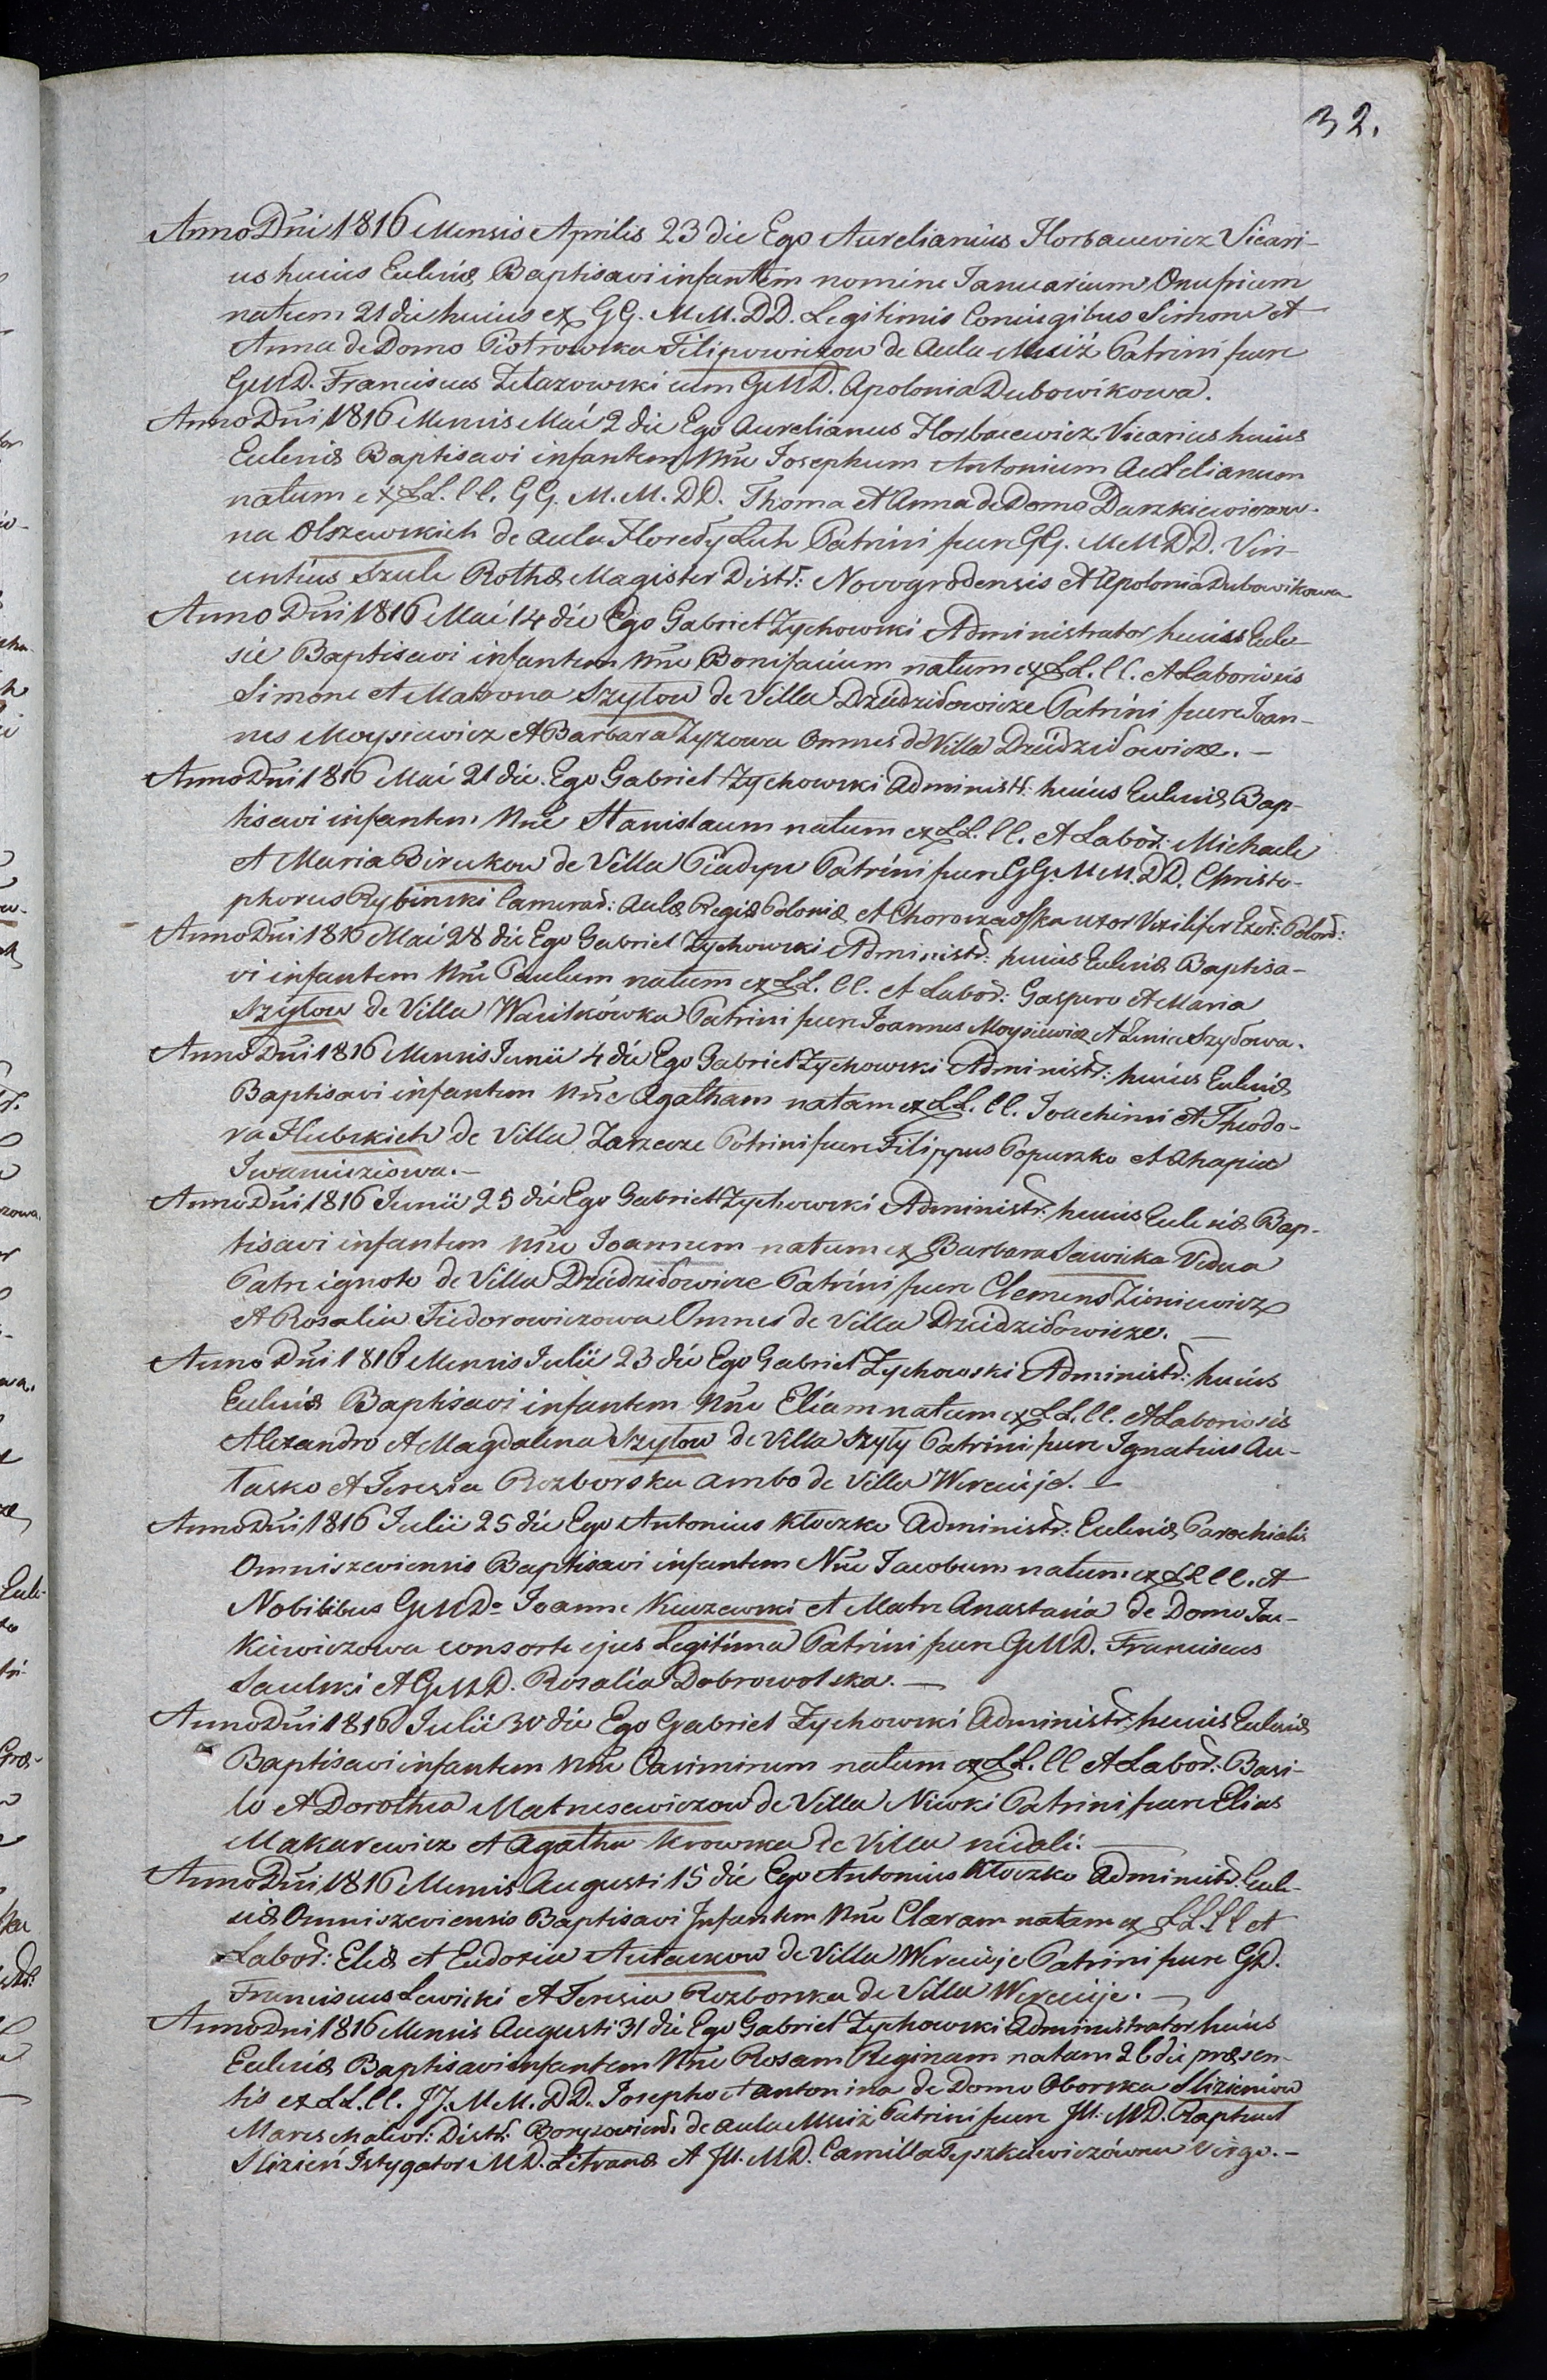 32.
Anno Dni 1816 Mensis Aprilis 23 die Ego Aurelianus Horbacewicz Vicari-
us huius Eccłesiæ Baptisavi infantem nomine Januarium Onufrium
natum 21 die huius ex GG. M M. DD. Legitimis Coniugibus Simone et
Anna de Domo Piotrowska Filipowiczow de Aula Mściż Patrini fuere
GMD. Franciscus Żelazowski cum GMD. Apolonia Dubowikowa.
Anno Dni 1816 Mensis Mai 2 die Ego Aurelianus Horbacewicz Vicarius huius
Ecclesiæ Baptisavi infantem Nne Josephum Antonium Aurelianum
natum ex LL. CC. GG. M. M. DD. Thoma et Anna de Domo Daszkiewiczow-
na Olszewskich de Aula Horodyszcze Patrini fuere GG. MM DD. Vin-
centius Szulc Rothæ Magister Distr: Novogrodensis et Apolonia Dubowikowa
Anno Dni 1816 Mai 14 die Ego Gabriel Zychowski Administrator huius Eccle-
siæ Baptisavi infantem Nne Bonifacium natum ex LL. CC. et Laboriosis
Simone et Matrona Szyłow de Villa Dziedziłowicze Patrini fuere Joan-
nes Moysiewicz et Barbara Zyzowa Omnes de Villa Dziedziłowicze. —
Anno Dni 1816 Mai 21 die Ego Gabriel Zychowski Administr: huius Ecclesiæ Bap-
tisavi infantem Nne Stanislaum natum ex LL. CC. et Labor: Michaele
et Maria Birukow de Villa Piadyn Patrini fuere GG. M M. DD. Christo-
phorus Rybinski Camerar: Aulæ Regiæ Poloniæ et Uxor Vexilifer Exer: Polon:
Anno Dni 1816 Mai 28 die Ego Gabriel Zychowski Administr: huius Ecclesiæ Baptisa-
vi infantem Nne Paulum natum ex LL. CC. et Labor: Gaspero et Maria
Szyłow de Villa Wasilkówka Patrini fuere Joannes Moysiewicz et Szyłowa.
Anno Dni 1816 Mensis Junii 4 die Ego Gabriel Zychowski Administr: huius Ecclesiæ
Baptisavi infantem Nne Agatham natam ex LL. CC. Joachimi et Theodo-
ra Hubskich de Villa Zarzecze Patrini fuere Filippus Popuszko et Ahapia
Iwaniuziowa. —
Anno Dni 1816 Junii 25 die Ego Gabriel Zychowski Administr: huius Ecclesiæ Bap-
tisavi infantem Nne Joannem natum ex Barbara Sawicka Vidua
Patre ignoto de Villa Dziedziłowicze Patrini fuere Clemens Zioniewicz
et Rosalia Fiedorowiczowa Omnes de Villa Dziedziłowicze. —
Anno Dni 1816 Mensis Julii 23 die Ego Gabriel Zychowski Administr: huius
Ecclesiæ Baptisavi infantem Nne Eliam natum ex LL. CC. et Laboriosis
Alexandro et Magdalena Szyłow de Villa Szyły Patrini fuere Ignatius Au-
łasko et Teresia Rozborska ambo de Villa Wereuije. —
Anno Dni 1816 Julii 25 die Ego Antonius Kłoczko Administr: Ecclesiæ Parochialis
Omniszeviensis Baptisavi infantem Nne Jacobum natum ex LL CC. et
Nobilibus GMDo Joanne Kuczewski et Matre Anastasia de Domo Jac-
kiewiczowa consorte ejus Legitima Patrini fuere GMD. Franciscus
Saulski et GMD. Rosalia Dobrowolska. —
Anno Dni 1816 Julii 30 die Ego Gabriel Zychowski Administr: huius Ecclesiæ
Baptisavi infantem Nne Casimirum natum ex LL. CC et Labor: Basi-
lo et Dorothea Matusewiczow de Villa Niwki Patrini fuere Elias
Makarewicz et Agatha Krowska de Villa Niedali. —
Anno Dni 1816 Mensis Augusti 15 die Ego Antonius Kłoczko Administr. Eccle-
siæ Omniszeviensis Baptisavi Infantem Nne Claram natam ex LL CC et
Labor: Eliæ et Eudoxia Autaskow de Villa Wereuije Patrini fuere GD.
Franciscus Lewicki et Teresia Rozborska de Villa Wereuije. —
Anno Dni 1816 Mensis Augusti 31 die Ego Gabriel Zychowski Administrator huius
Ecclesiæ Baptisavi infantem Nne Rosam Reginam natam 26 die præsen-
tis ex LL. CC. JJ. M M. DD. Josepho et Antonina de Domo Oborska Slizieniow
Mareschalcor: Distr: Borysoviens: de Aula Mściż Patrini fuere Jll. MD. Raphael
Slizień Istygator MD. Litvaniæ et Jll. MD. Camilla Tyszkiewiczówna Virgo. —